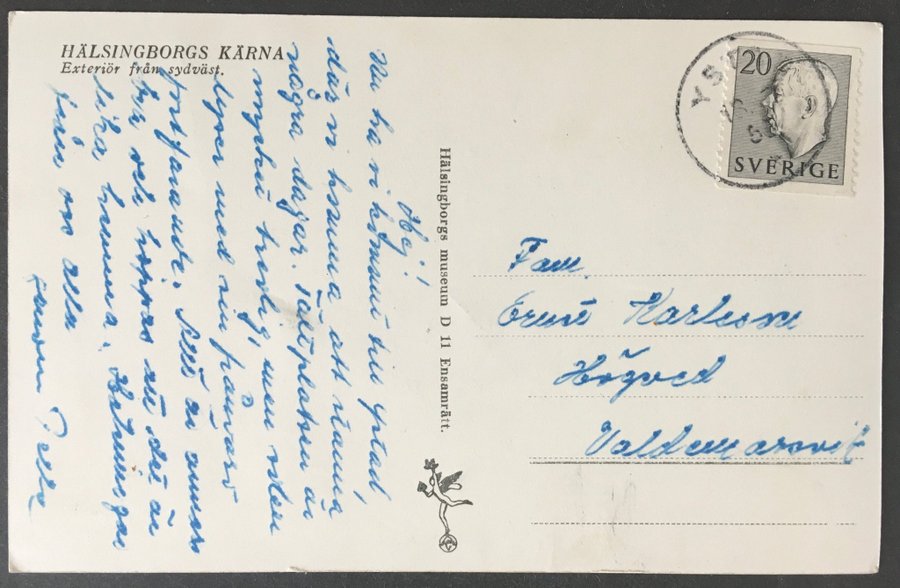 HÄLSINGBORGS KÄRNA
Exteriör från sydväst.
Hej!
Nu ha vi kommit till Ystad
där vi komma att stanna
några dagar. Tältplatsen är
mycket trevlig, men vädret
men vi
fortfarande. Allt är annars
bra och hoppas att det är
lika hemma. Hälsningar
från oss alla
Hälsingborgs museum D 11 Ensamrätt.
YST
20
SVERIGE
Fam.
Ernst Karlsson
Högved
Valdemarsvik